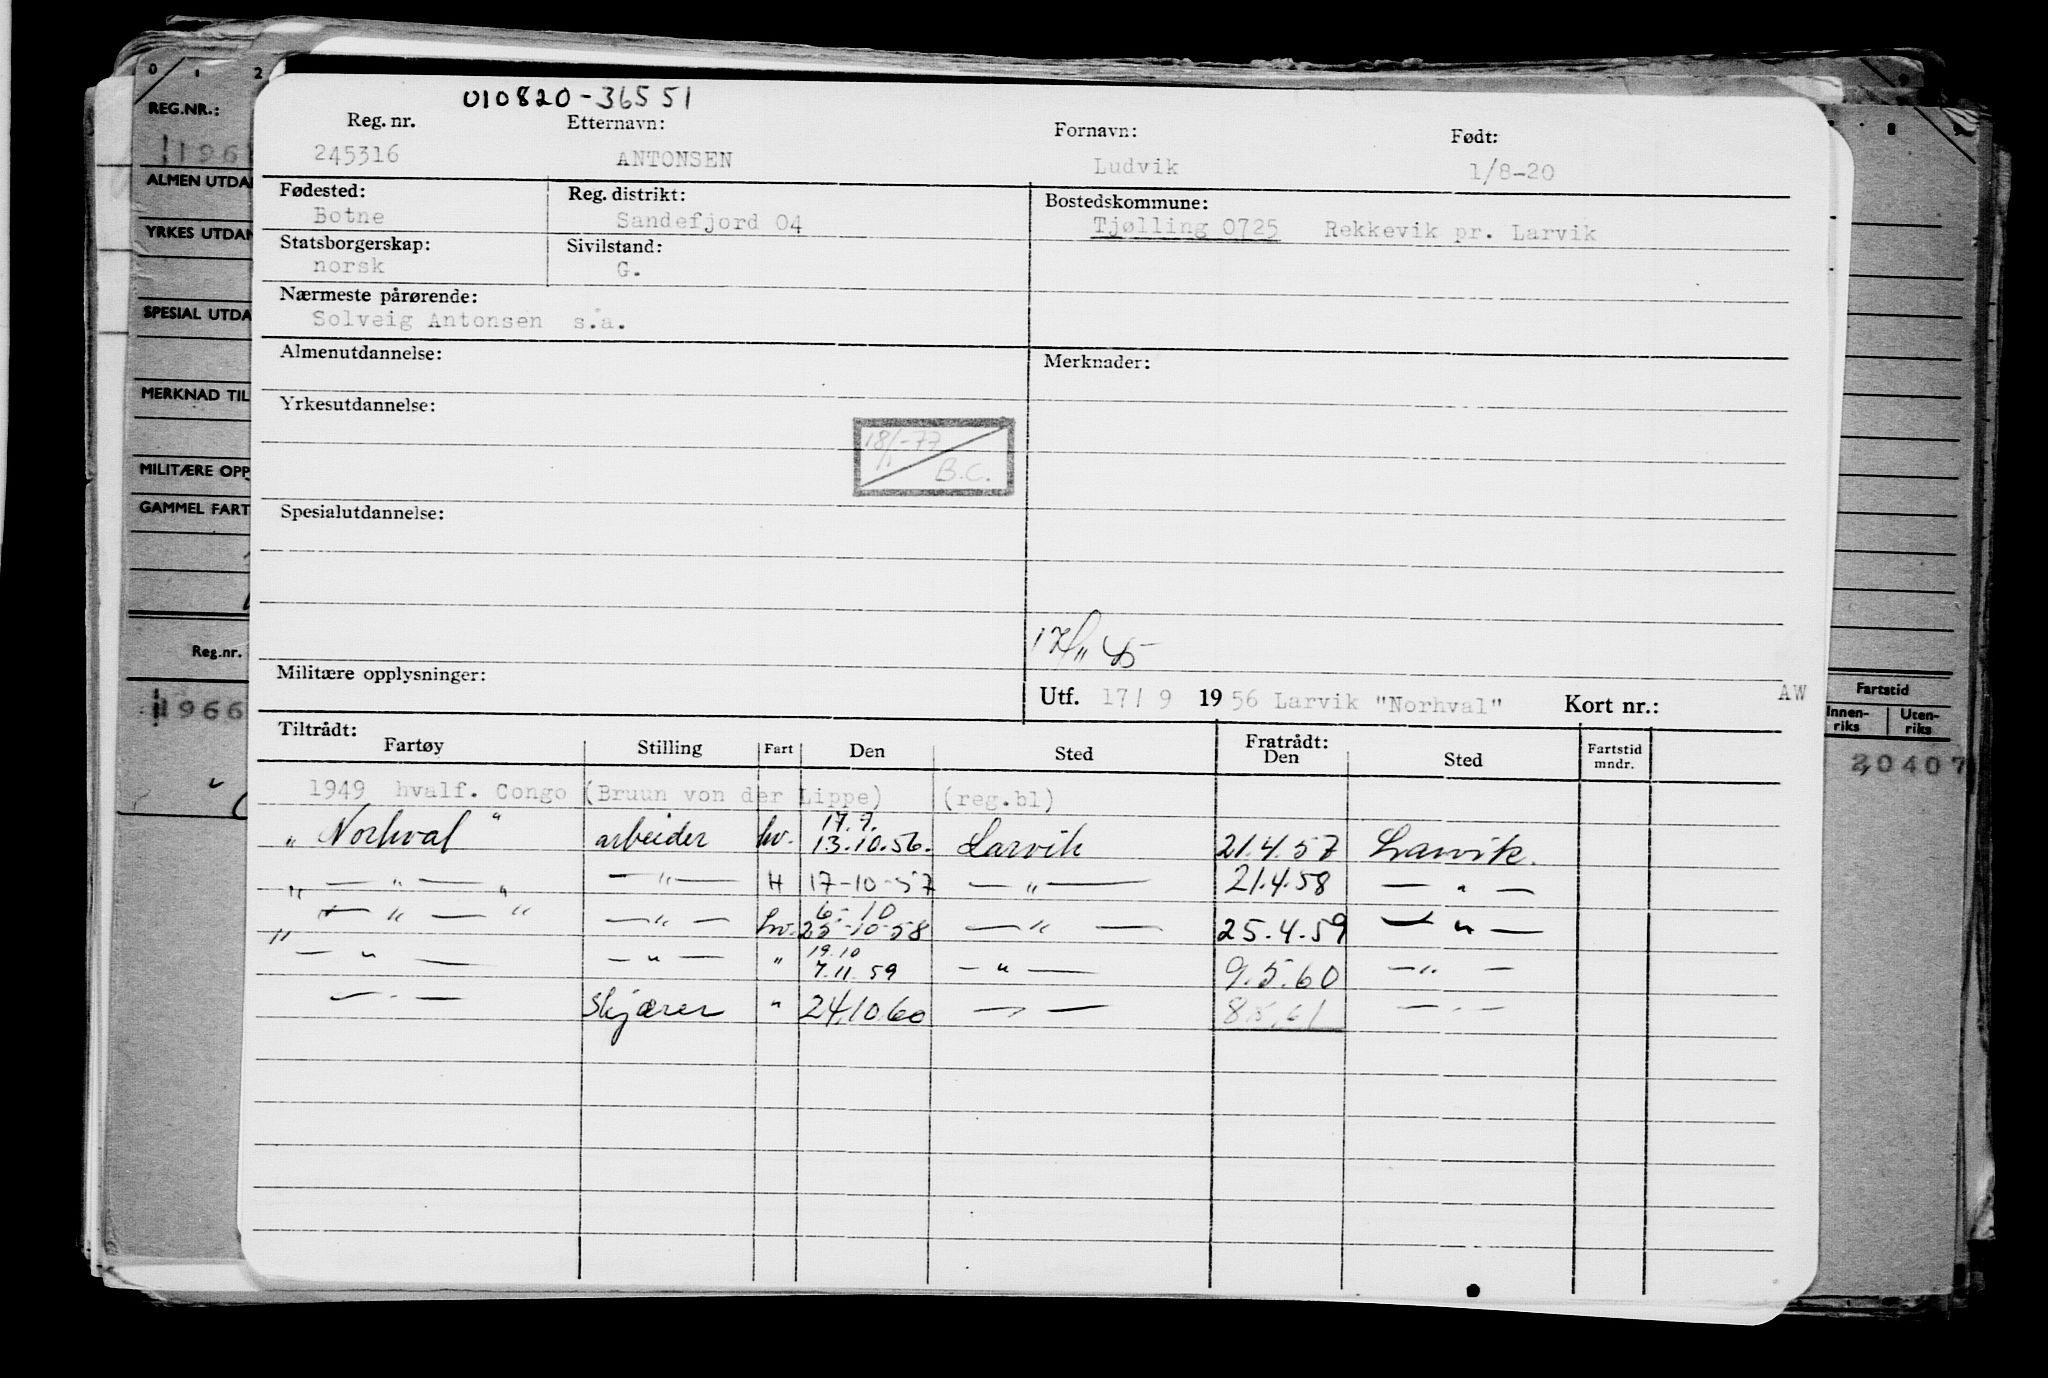 010820-36551
Reg. nr. Etternavn: Fornavn: Født:
245316 ANTONSEN Ludvik 1/8-20
Fødested: Reg. distrikt: Bostedskommune:
Botne Sandefjord 04 Tjølling 0725 Rekkevik pr. Larvik
Statsborgerskap: Sivilstand:
norsk G.
Nærmeste pårørende:
Solveig Antonsen s.a.
Almenutdannelse: Merknader:
Yrkesutdannelse:
18/1-77
B.C.
Spesialutdannelse:
Militære opplysninger:
Utf. 17/ 9 1956 Larvik "Norhval" Kort nr.: AW
Tiltrådt: Fratrådt:
Fartøy Stilling Fart Den Sted Den Sted Fartstid mndr.
1949 hvalf. Congo (Bruun von der Lippe) (reg.bl)
17.9.
„ Norhval " arbeider hv. 13.10.56. Larvik 21.4.57 Larvik.
„ — „ — " — „ — H 17-10-57 — „ — 21.4.58 — „ —
6.-10
— „ — " — „ — hv. 25-10-58 — „ — 25.4.59 — „ —
19.10
" — „ — — „ — " 7.11.59 — „ — 9.5.60 — „ —
— „ — Skjærer " 24.10.60 — „ — 8.5.61 — „ —
0 1 2
REG.NR.:
ALMEN UTDA
YRKES UTDAN
SPESIAL UTDA
MERKNAD TIL
MILITÆRE OPP
GAMMEL FART
Reg.nr.
1966
8 9
Fartstid
Innen-riks Uten-riks
20407